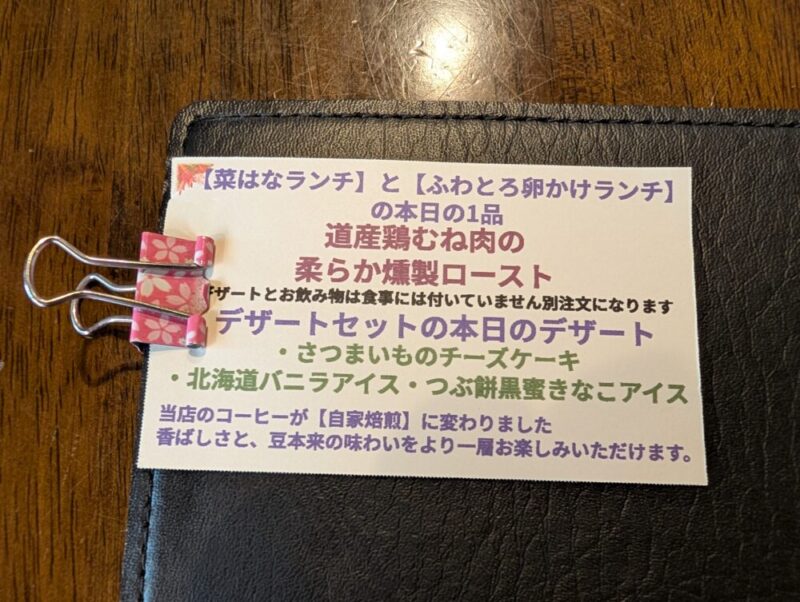 【菜はなランチ】と【ふわとろ卵かけランチ】
の本日の1品
道産鶏むね肉の
柔らか燻製ロースト
デザートとお飲み物は食事には付いていません別注文になります
デザートセットの本日のデザート
・さつまいものチーズケーキ
・北海道バニラアイス・つぶ餅黒蜜きなこアイス
当店のコーヒーが【自家焙煎】に変わりました
香ばしさと、豆本来の味わいをより一層お楽しみいただけます。